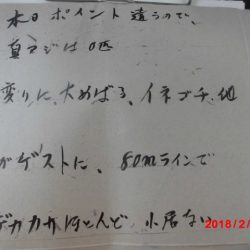 本日ポイント違うので、
真アジは0匹
変りに、大めばる、イネゴチ、他
がゲストに、80mラインで
デカカカほとんど 小居ない
2018/2/